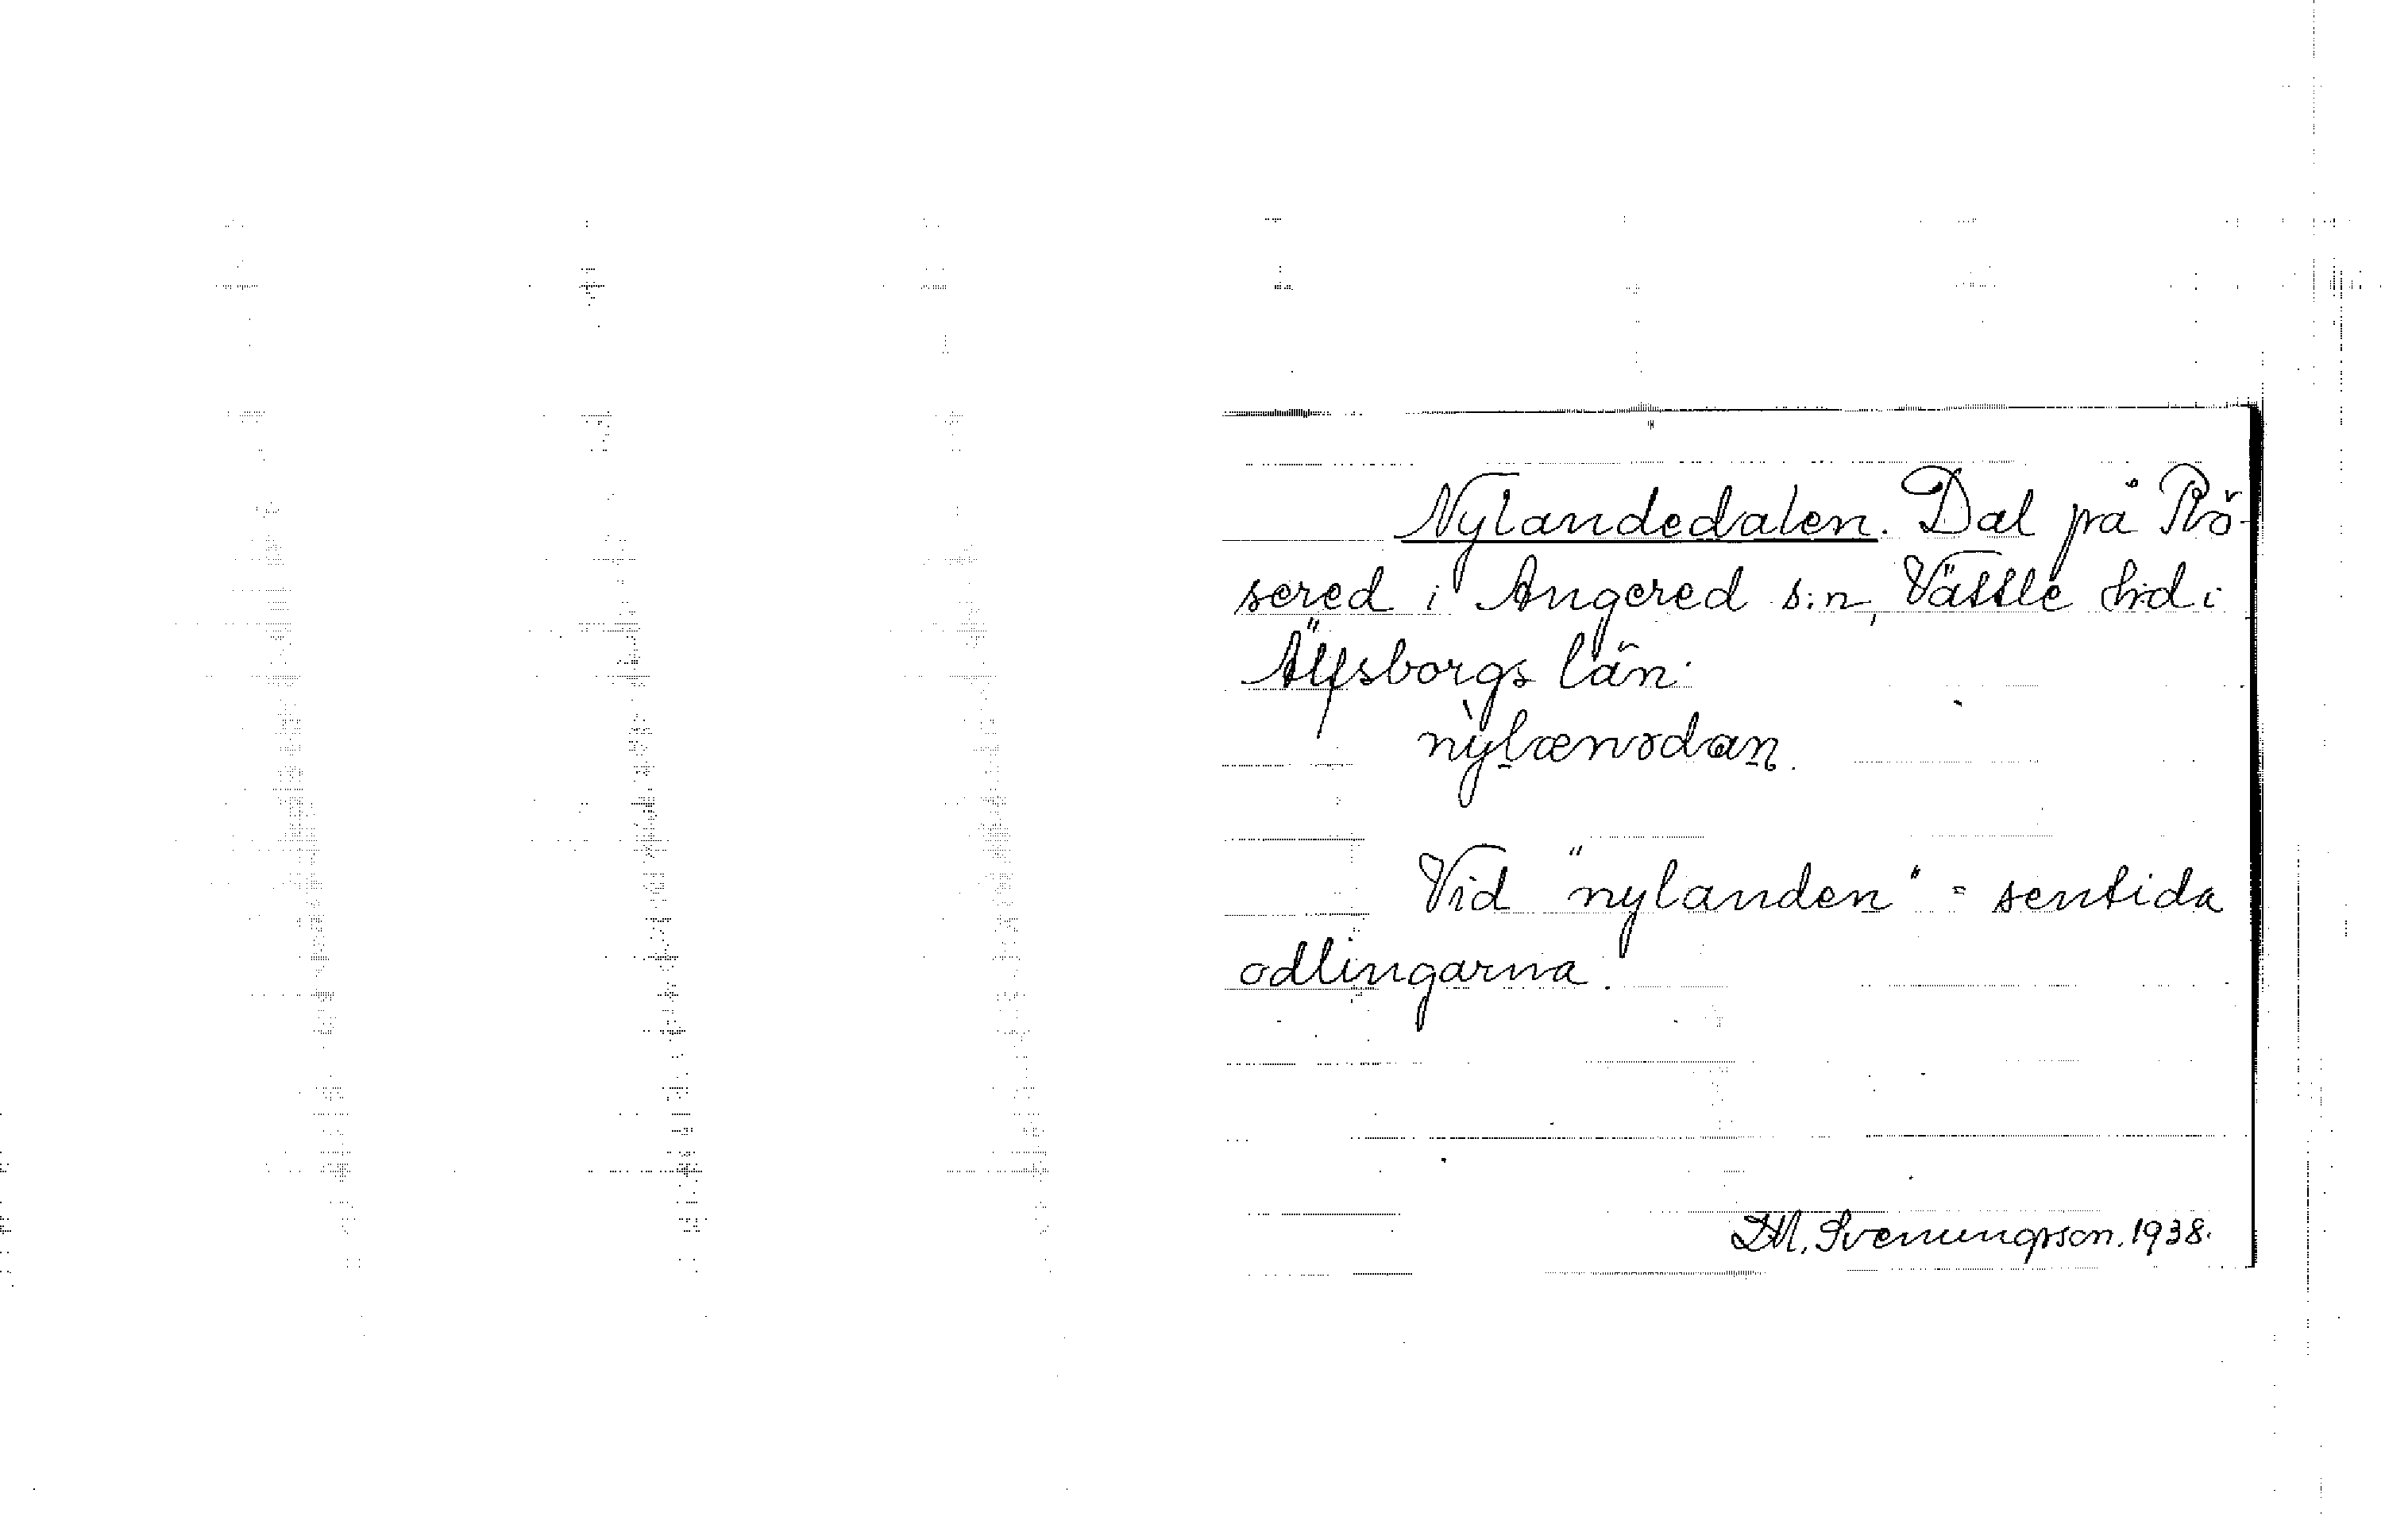 Nylandedalen. Dal på Rö-
sered i Angered s:n, Vättle hd i
Älfsborgs län.
nỳlænədan.
Vid "nylanden" = sentida
odlingarna.
D.M. Svenungsson. 1938.